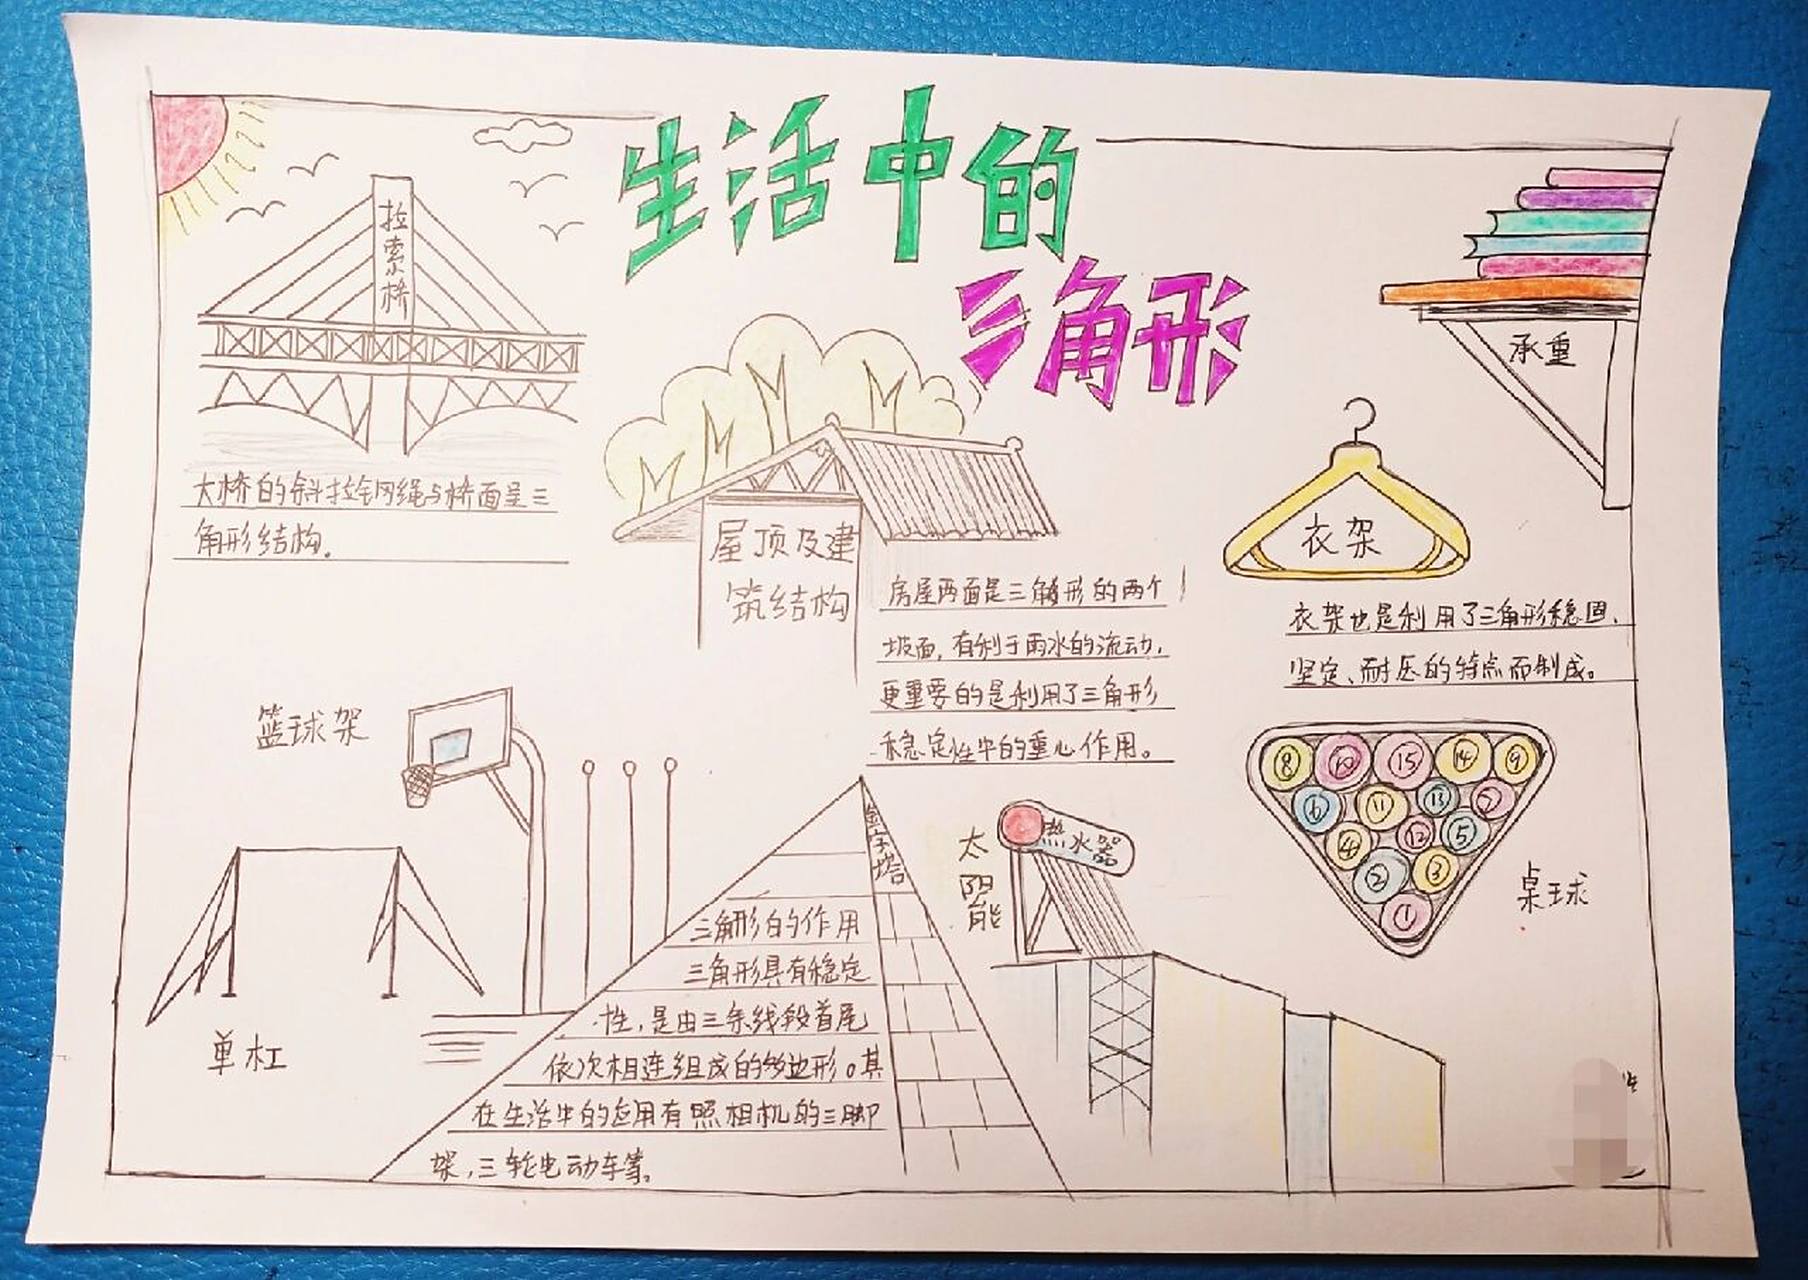 生活中的
三角形
拉索桥
大桥的斜拉钢绳与桥面呈三
角形结构。
承重
屋顶及建
筑结构
房屋两面是三角形的两个
坡面,有利于雨水的流动,
更重要的是利用了三角形
稳定性中的重心作用。
衣架
衣架也是利用了三角形稳固、
坚定、耐压的特点而制成。
篮球架
单杠
金字塔
三角形的作用
三角形具有稳定
性,是由三条线段首尾
依次相连组成的多边形。其
在生活中的应用有照相机的三脚
架,三轮电动车等。
太阳能
热水器
⑧ ⑩ ⑮ ⑭ ⑨
⑥ ⑪ ⑬ ⑦
④ ⑫ ⑤
② ③
①
桌球